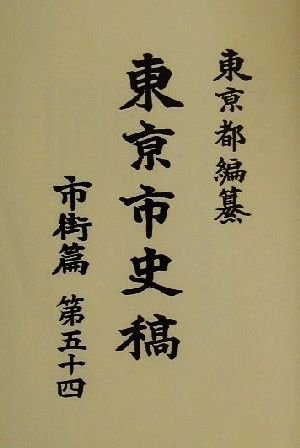 東亰都編纂
東亰市史稿
市街篇 第五十四